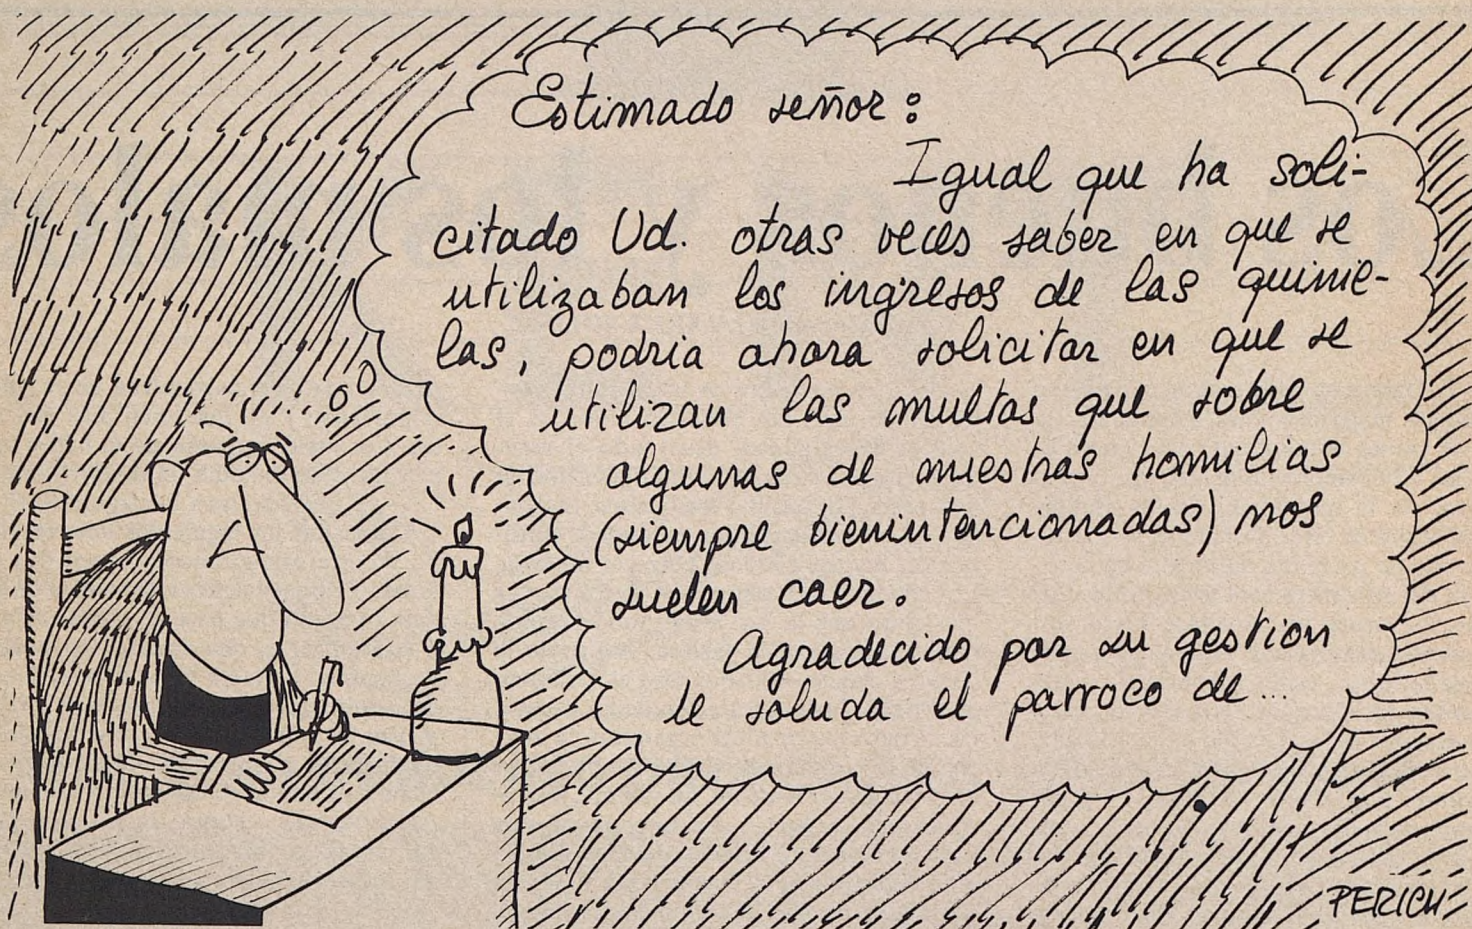 Estimado señor:
Igual que ha soli-
citado Ud. otras veces saber en que se
utilizaban los ingresos de las quinie-
las, podria ahora solicitar en que se
utilizan las multas que sobre
algunas de nuestras homilias
(siempre bienintencionadas) nos
suelen caer.
Agradecido por su gestion
le saluda el parroco de...
PERICH